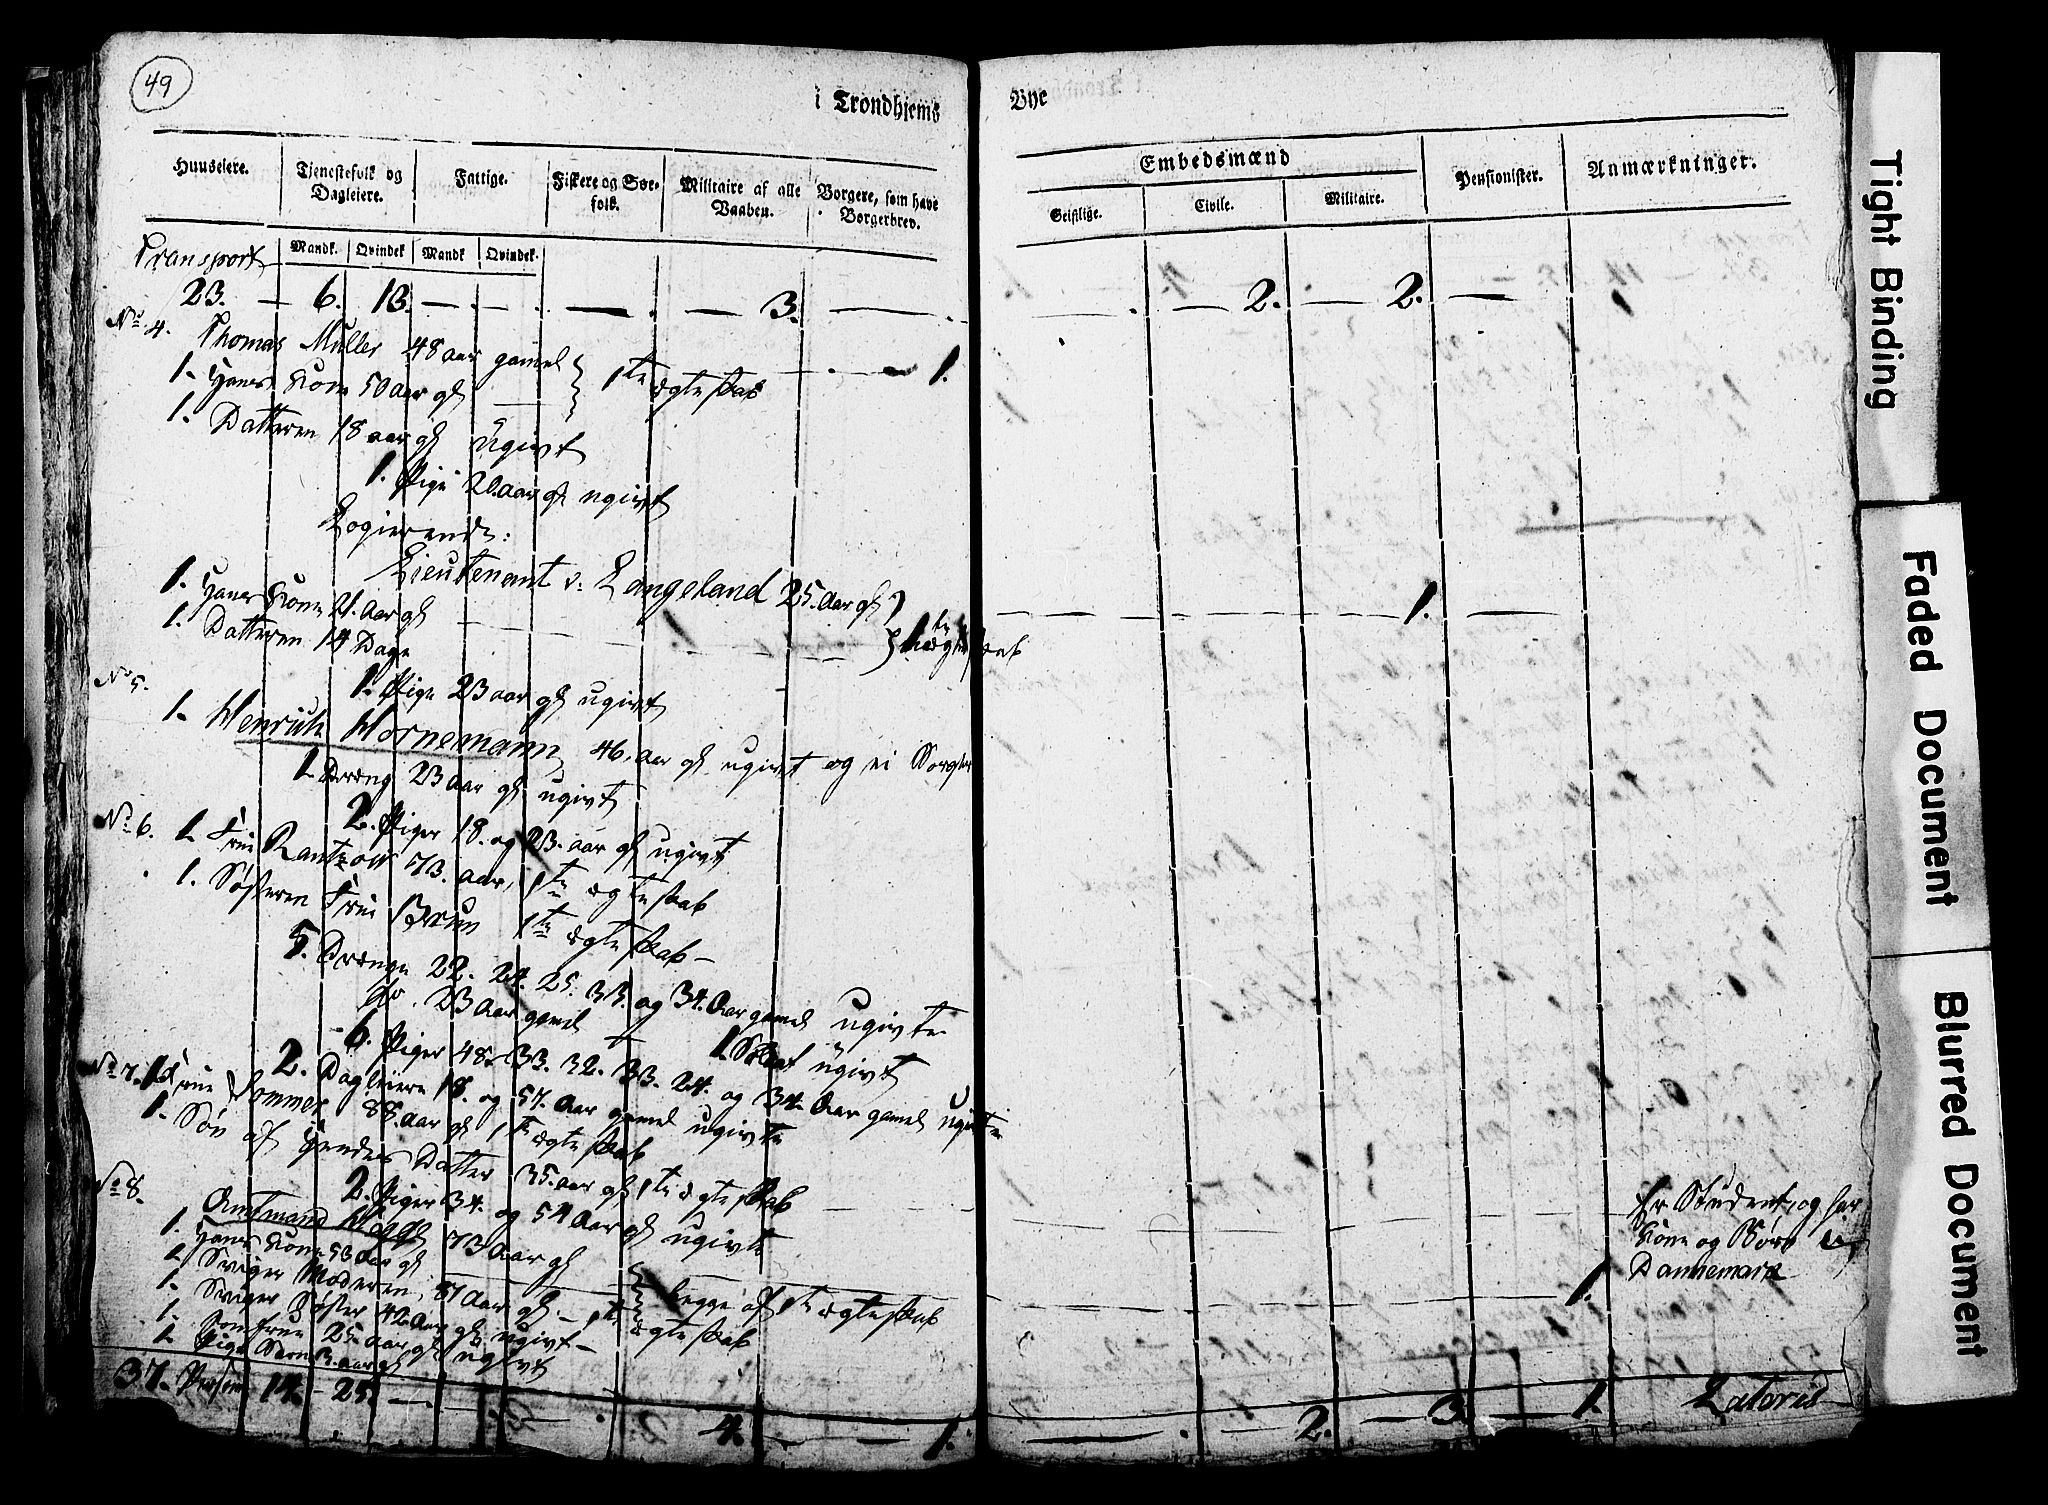 49
i Trondhjems Bye
Huuseiere.
Tjenestefolk og Dagleiere.
Fattige.
Fiskere og Søefolk.
Militaire af alle Vaaben.
Borgere, som have Borgerbrev.
Embedsmænd
Pensionister.
Anmærkninger.
Geistlige.
Civile.
Militaire.
Mandk. Qvindek Mandk Qvindek.
Transport
23. — 6. 13. — . — . — 3. — . — 2. — 2. —
No. 4. Thomas Muller 48 aar gamel 1.
1. Hanes Kone 50 aar gl 1te ægteskab
1. Datteren 18 aar gl ugivt
1. Pige 20. aar gl ugivt
Logierende:
Lieutenant v: Langeland 25. Aar gl 1.
1. Hanes Kone 21. Aar gl 1te ægteskab
1. Datteren 14 Dage
1. Pige 23 aar gl ugivt
No 5.
1. Henrich Hornemann 46. aar gl. ugivt og ei Borger
1 Dreng 23 aar gl ugivt
2. Piger 18. og 23. aar gl ugivt
No. 6. 1. Frue Rantzow 73. aar, 1te ægteskab
1. Søsteren Frue Brun 1te ægteskab —
5. Drenge 22. 24. 25. 33. og 34. Aar gamel ugivte
do. 23 Aar gamel — 1 Soldat ugivt
6. Piger 48. 33. 32. 33. 24. og 34. Aar gamel ugivte
2. Dagleiere 18. og 57. Aar gamel ugivte
No 7. 1 Frue Sommer 88. aar gl 1te ægteskab
1. Søn af Hendes Datter 35. aar gl 1te ægteskab
Er Student, og har Kone og Børn i Dannemark
2. Piger 34. og 54 Aar gl ugivte
No 8. Amtmand 73 Aar gl 1.
1. Hanes Kone 53 Aar gl begge af 1te ægteskab
1. Sviger Moderen, 81 Aar gl. — 1te ægteskab
1. Sviger Søster 42 Aar gl ugivt —
1. Jomfrue 25. aar gl ugivt
1. Pige 3. aar gl
37. 14. — 25. — . — . 4. — 1. — . 2. — 3. — 1. Lateris
Tight Binding
Faded Document
Blurred Document